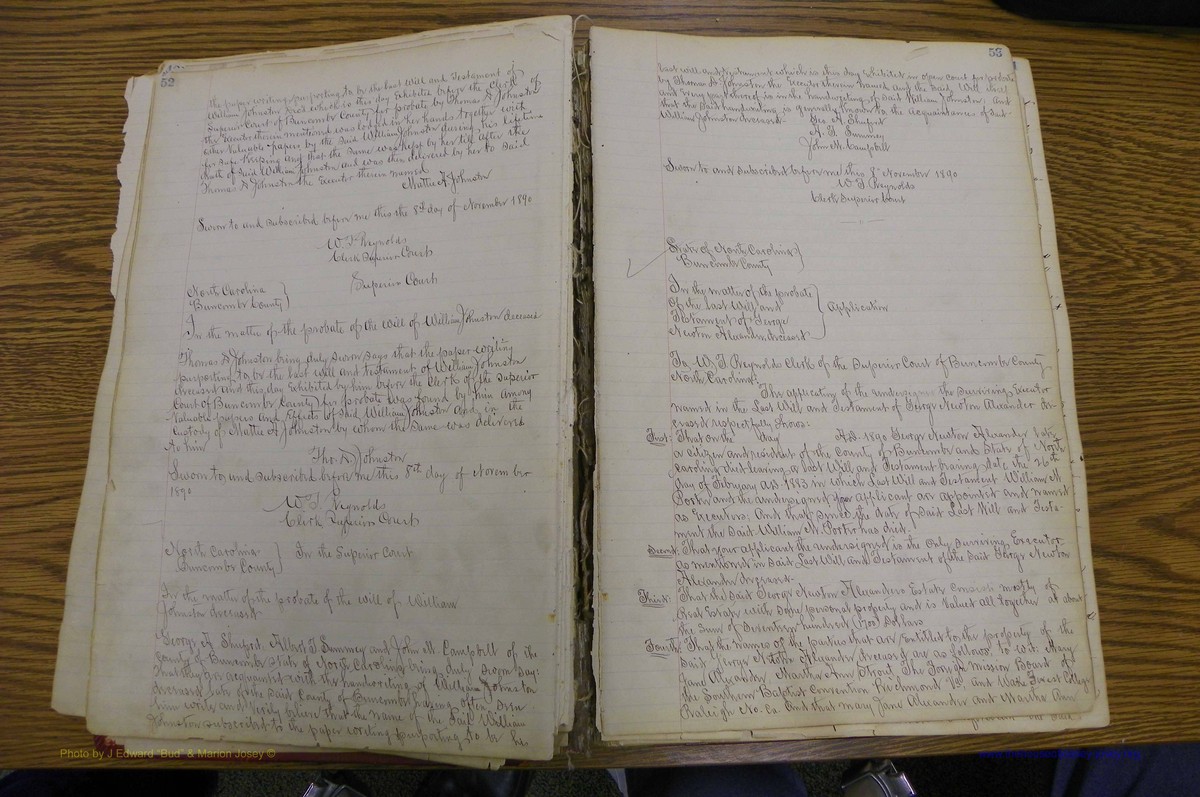 52
the paper writing purporting to be the last Will and Testament of
William Johnston and which is this day Exhibited before the Clerk of
Superior Court of Buncombe County for probate by Thomas A Johnston
the Executor therein mentioned was lodged in her hands together with
other Valuable papers by the said William Johnston during his lifetime
for safe Keeping and that the same was kept by her till after the
death of said William Johnston and was then delivered by her to said
Thomas A Johnston the Executor therein named
Mattie A Johnston
Sworn to and subscribed before me this the 8th day of November 1890
W. T. Reynolds
Clerk Superior Court
Superior Court
North Carolina
Buncombe County
In the matter of the probate of the will of William Johnston deceased
Thomas A Johnston being duly sworn says that the paper writing
purporting to be the last will and testament of William Johnston
deceased and this day Exhibited by him before the Clerk of the Superior
Court of Buncombe County for probate was found by him among
Valuable papers and Effects of said William Johnston and in the
custody of Mattie A Johnston by whom the same was delivered
to him
Tho. A Johnston
Sworn to and subscribed before me this 8th day of November
1890
W. T. Reynolds
Clerk Superior Court
North Carolina
Buncombe County } In the Superior Court
In the matter of the probate of the will of William
Johnston deceased
George A Shuford, Albert T Summey and John M. Campbell of the
County of Buncombe State of North Carolina being duly Sworn Say:
that they are acquainted with the handwriting of William Johnston
deceased late of the said County of Buncombe having often seen
him write and verily believe that the name of the said William
Johnston subscribed to the paper writing purporting to be his
53
last will and testament which is this day exhibited in open court for probate
by Thomas A Johnston the Executor therein named and the said Will itself
and every part thereof is in the handwriting of said William Johnston, and
that the said handwriting is generally known to the acquaintances of said
William Johnston deceased.
Geo A Shuford
A. T. Summey
John M. Campbell
Sworn to and subscribed before me this 8th November 1890
W. T. Reynolds
Clerk Superior Court
State of North Carolina
Buncombe County
In the matter of the probate
of the last Will and
Testament of George
Newton Alexander, deceased
Application
To W. T. Reynolds Clerk of the Superior Court of Buncombe County
North Carolina:
The application of the undersigned the Surviving Executor
named in the Last Will and Testament of George Newton Alexander de-
ceased respectfully shows:
First: That on the day A.D. 1890 George Newton Alexander late
a citizen and resident of the County of Buncombe and State of North
Carolina died leaving a last Will and Testament bearing date the 26th
day of February A.D. 1883 in which Last Will and Testament William M.
Porter and the undersigned your applicant are appointed and named
as Executors; And that since the date of said Last Will and Testa-
ment the said William M. Porter has died.
Second: That your applicant the undersigned is the Only Surviving Executor
as mentioned in said Last Will and Testament of the said George Newton
Alexander deceased.
Third: That the said George Newton Alexanders Estate consists mostly of
Real Estate with some personal property and is valued all together at about
the sum of Seventeen hundred (1700) Dollars
Fourth: That the names of the parties that are Entitled to the property of the
said George Newton Alexander deceased are as follows to wit: Mary
Jane Alexander, Martha Ann The Foreign Mission Board of
the Southern Baptist Convention Richmond Va. and Wake Forest College
Raleigh No. Ca. And that Mary Jane Alexander and Martha Ann
Photo by J Edward "Bud" & Marion Josey ©